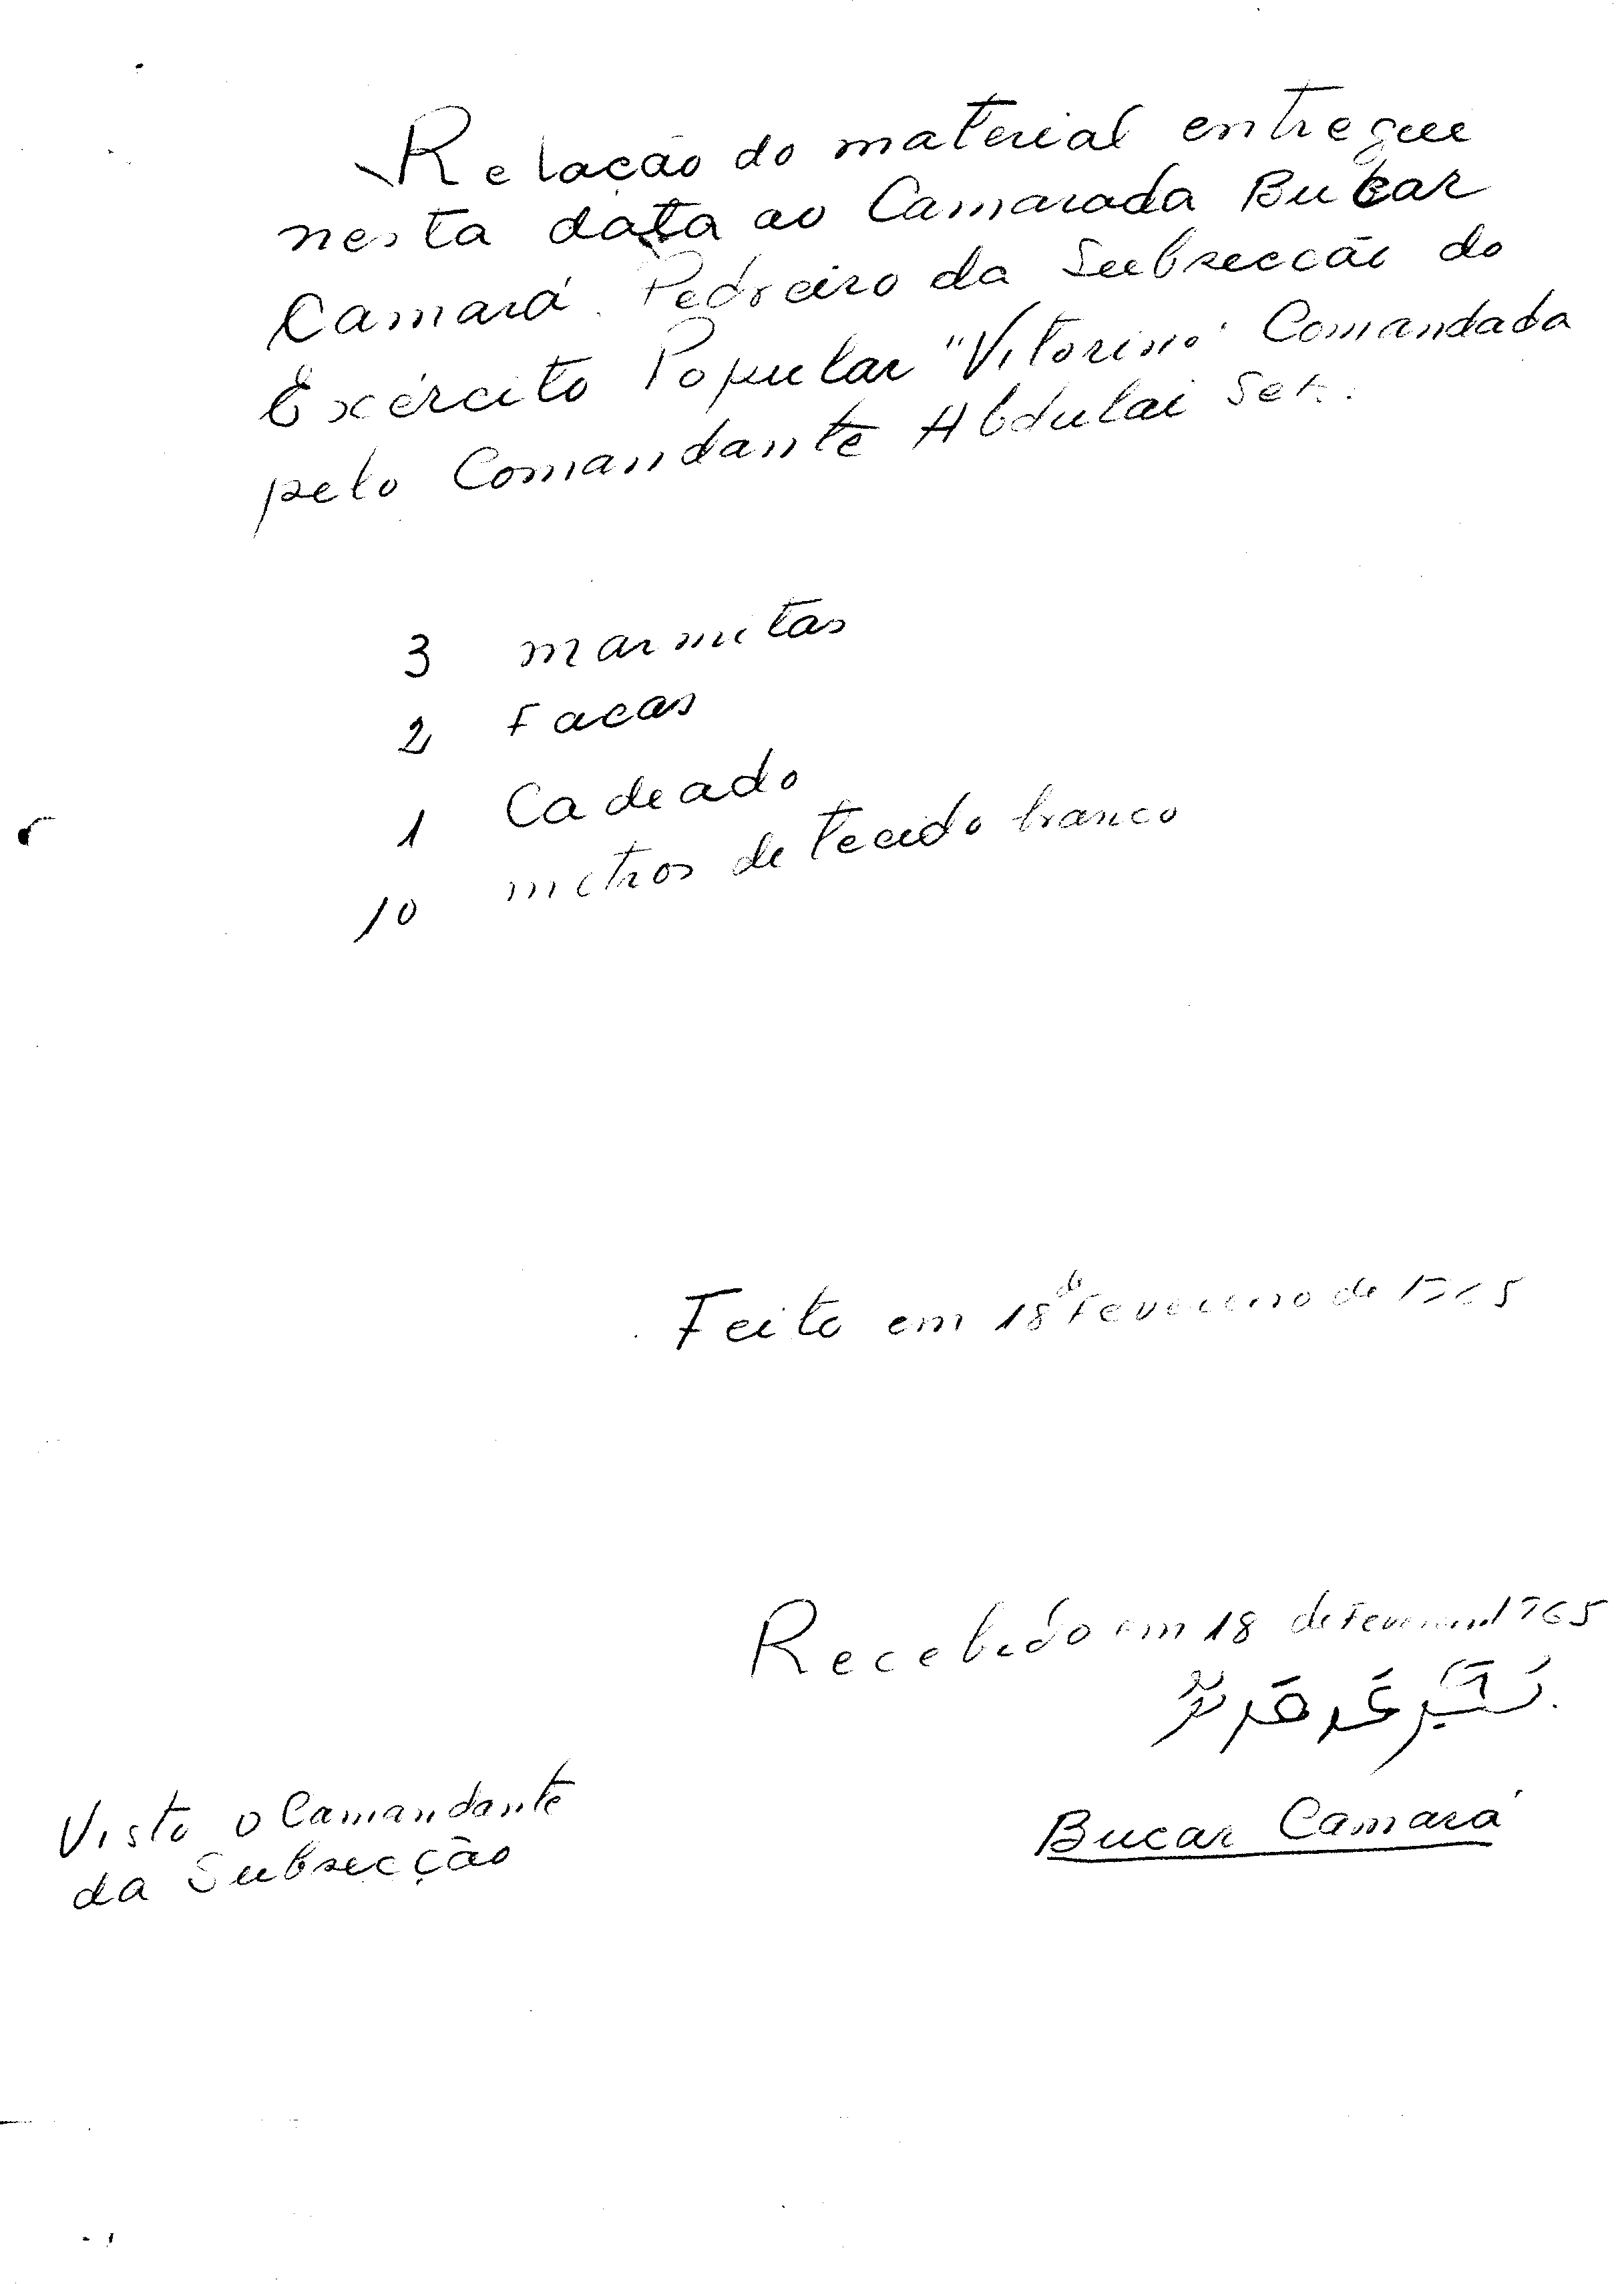 Relação do material entregue
nesta data ao Camarada Bucar
Camará. Pedreiro da Subsecção do
Exército Popular "Vitorino" Comandada
pelo Comandante Abdulai
3 marmitas
2 Facas
1 Cadeado
10 metros de tecido branco
Feito em 18 de Fevereiro de 1965
Recebido em 18 de Fevereiro 1965
Bucar Camará
Visto o Comandante
da Subsecção